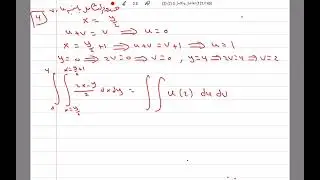 4
x = y/2
u+v = v ⟹ u=0
x = y/2 + 1 ⟹ u+v = v+1 ⟹ u = 1
y=0 ⟹ 2v=0 ⟹ v=0 , y=4 ⟹ 2v=4 ⟹ v=2
∫₀⁴ ∫_{x=y/2}^{x=y/2+1} (2x-y)/2 dx dy = ∫∫ u(2) du dv